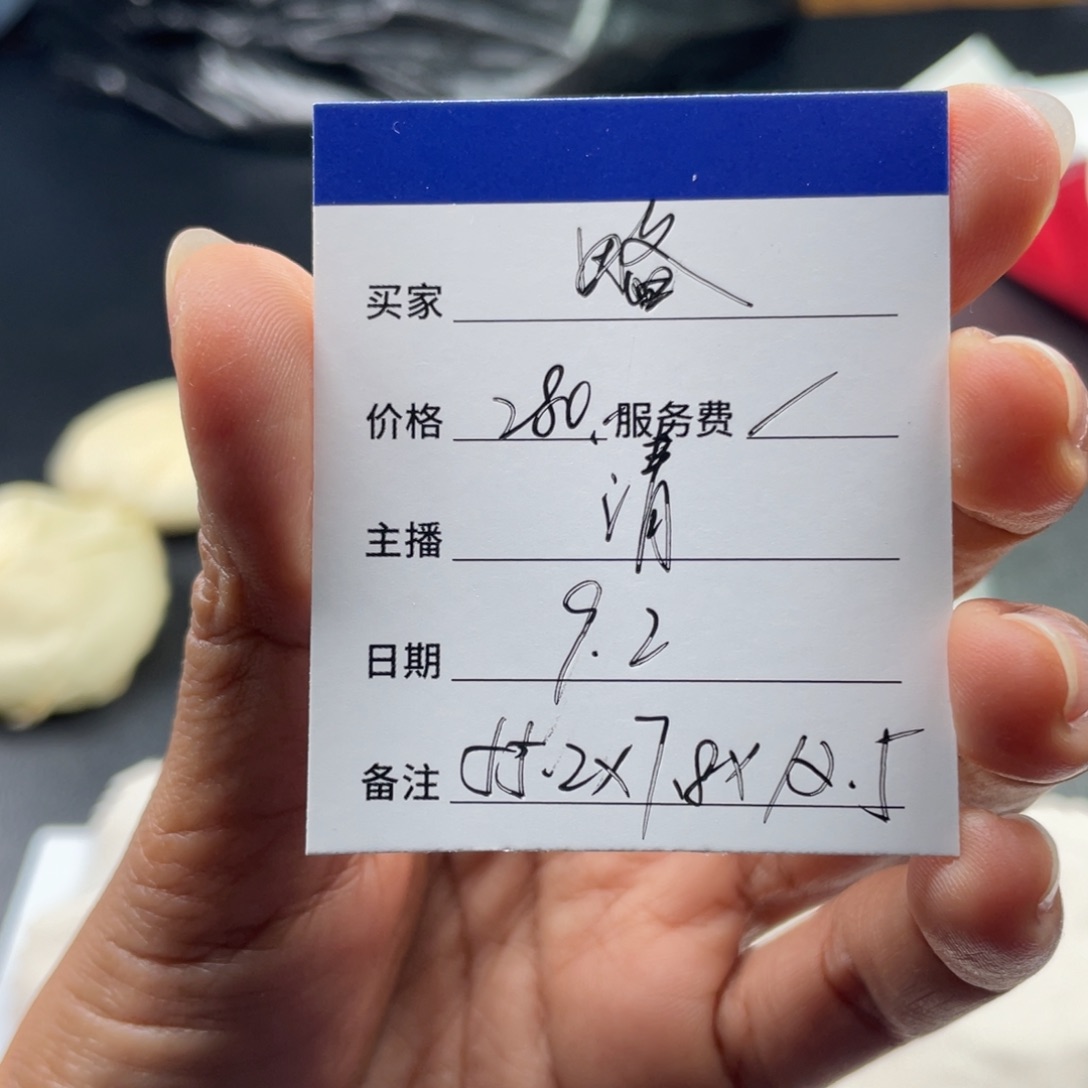 买家 略
价格 280. 服务费 /
主播 清
日期 9.2
备注 55.2x7.8x10.5